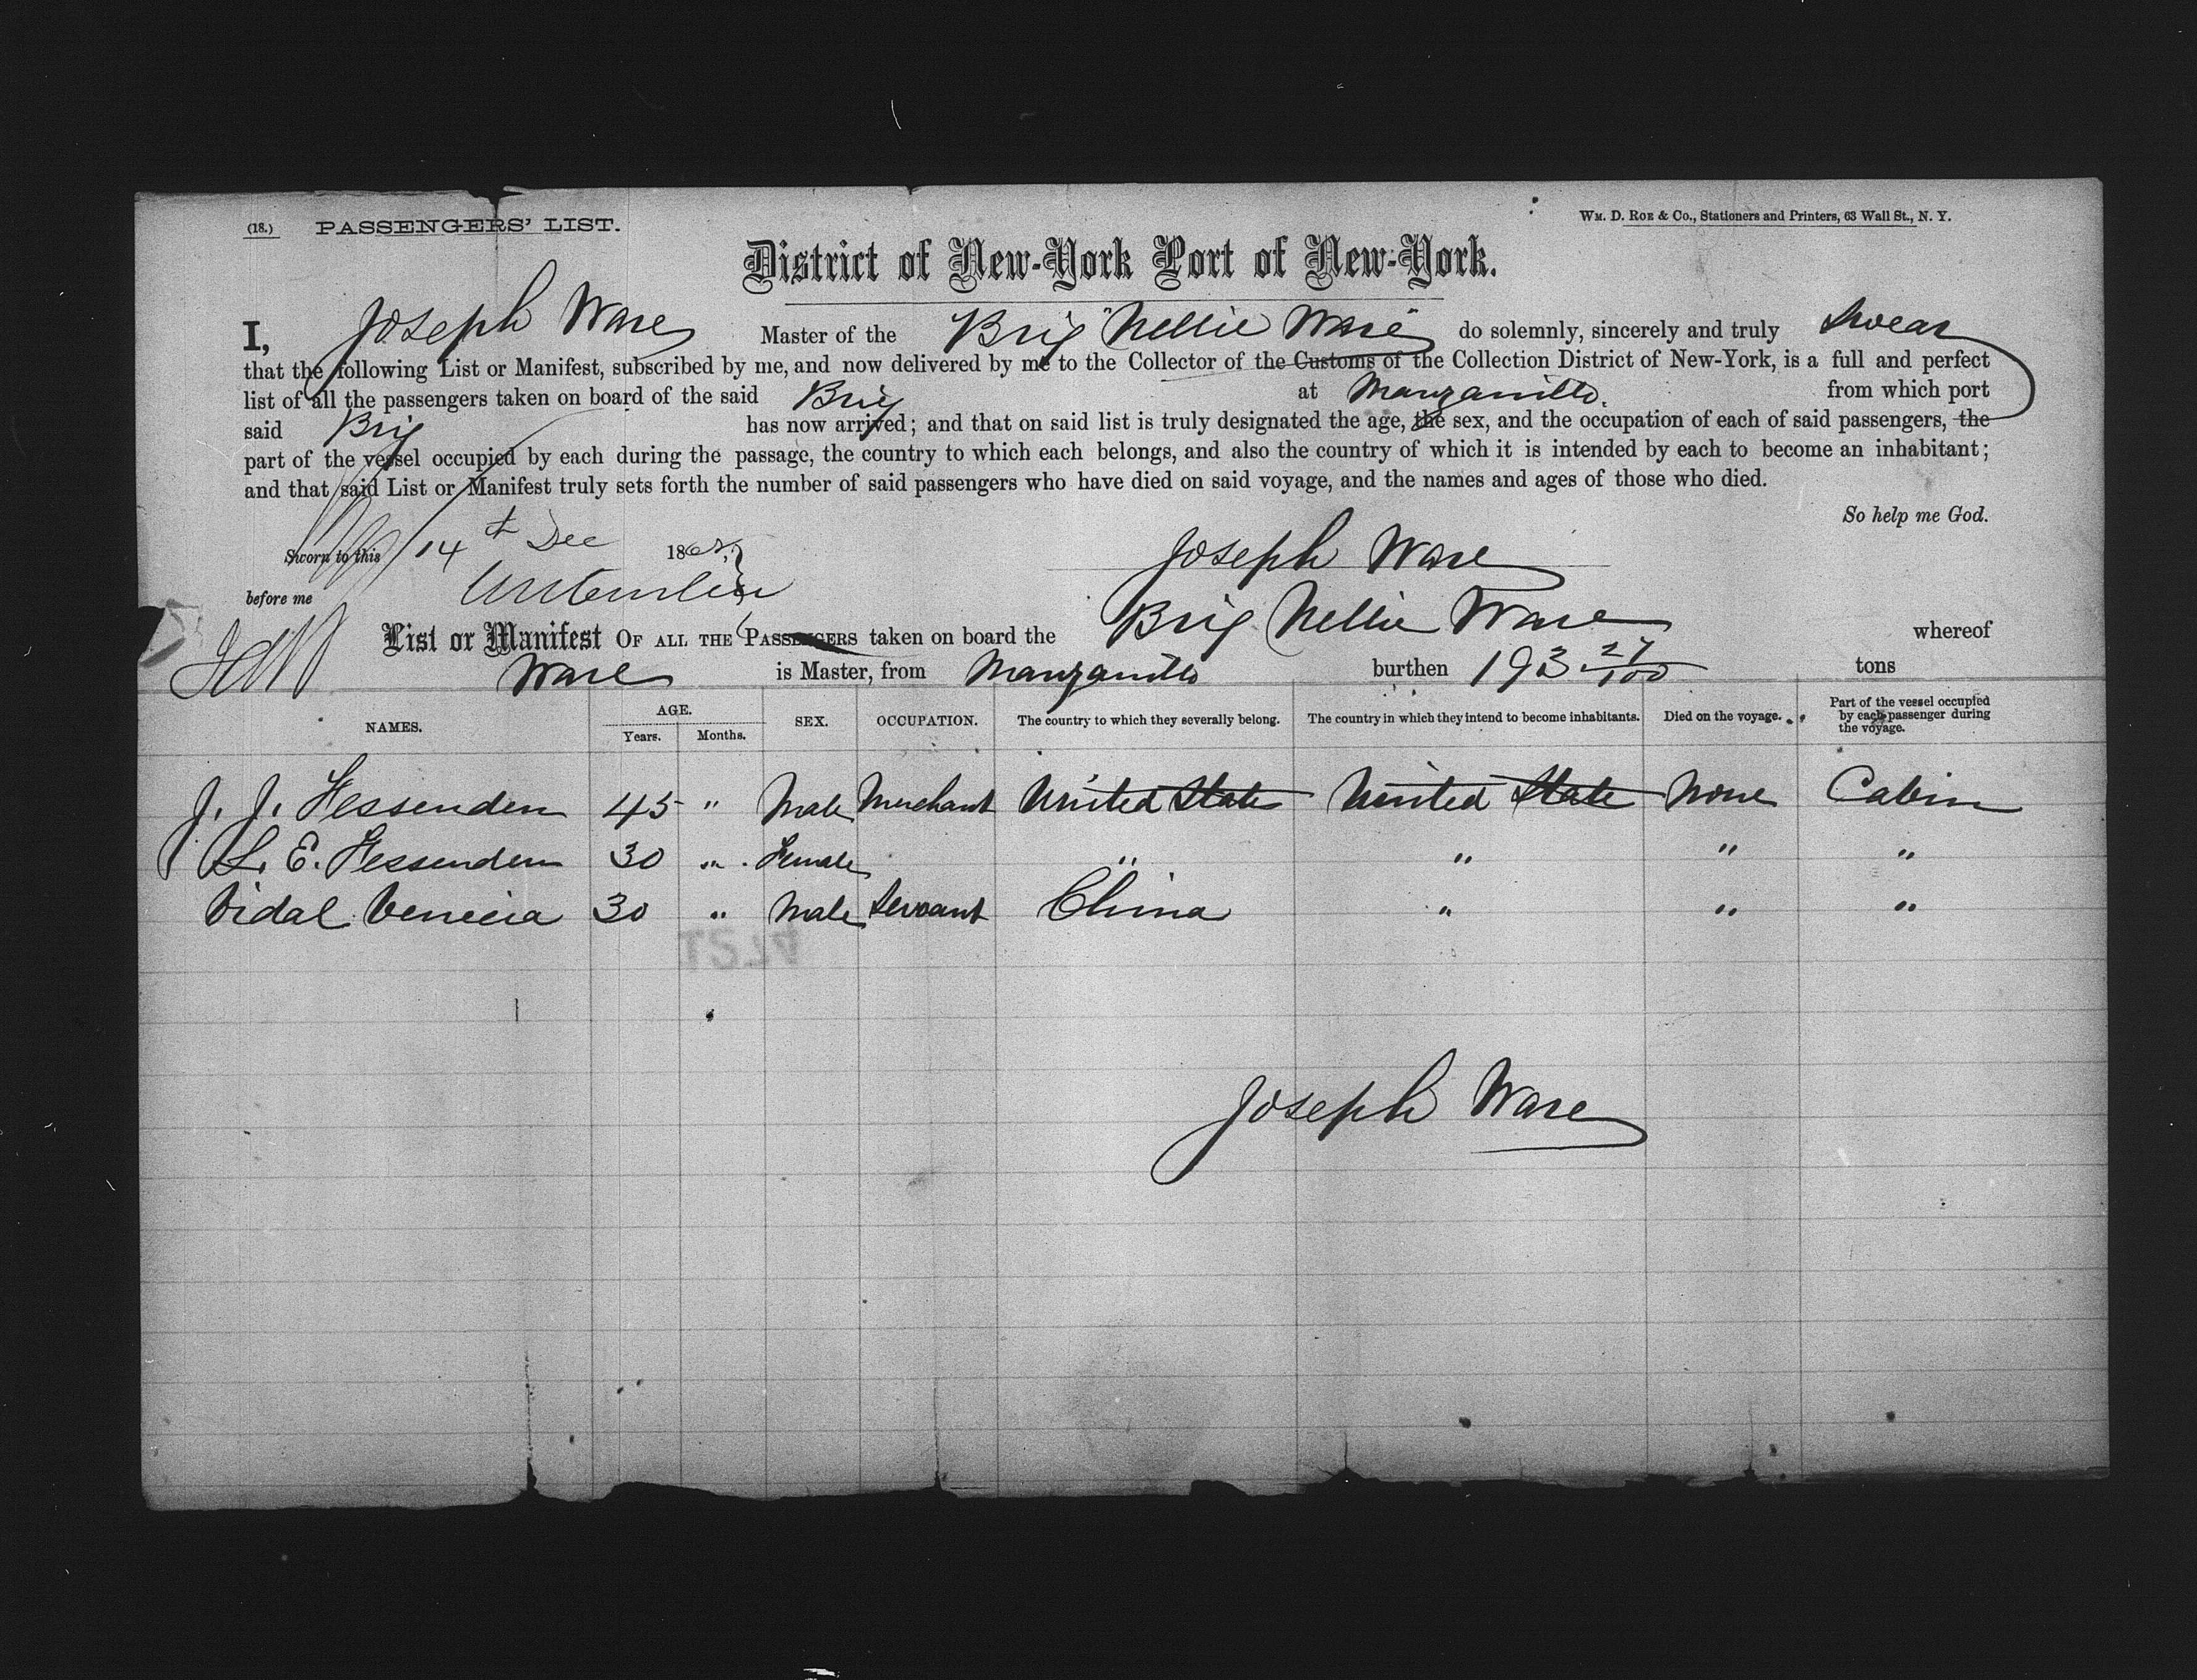 (18.) PASSENGERS' LIST.
WM. D. ROE & CO., Stationers and Printers, 63 Wall St., N. Y.
District of New-York Port of New-York.
I, Joseph Ware Master of the Brig "Nellie Ware" do solemnly, sincerely and truly Swear
that the following List or Manifest, subscribed by me, and now delivered by me to the Collector of the Customs of the Collection District of New-York, is a full and perfect
list of all the passengers taken on board of the said Brig at Manzanillo. from which port
said Brig has now arrived; and that on said list is truly designated the age, the sex, and the occupation of each of said passengers, the
part of the vessel occupied by each during the passage, the country to which each belongs, and also the country of which it is intended by each to become an inhabitant;
and that said List or Manifest truly sets forth the number of said passengers who have died on said voyage, and the names and ages of those who died.
So help me God.
Sworn to this 14 Dec 186
Joseph Ware
before me
List or Manifest OF ALL THE PASSENGERS taken on board the Brig Nellie Ware whereof
Ware is Master, from Manzanillo burthen 193 27/100 tons
NAMES. AGE. Years. Months. SEX. OCCUPATION. The country to which they severally belong. The country in which they intend to become inhabitants. Died on the voyage. Part of the vessel occupied by each passenger during the voyage.
J. J. Fessenden 45 " Male Merchant United State United State None Cabin
L. E. Fessenden 30 " Female " " " "
Vidal 30 " Male Servant China " " "
Joseph Ware